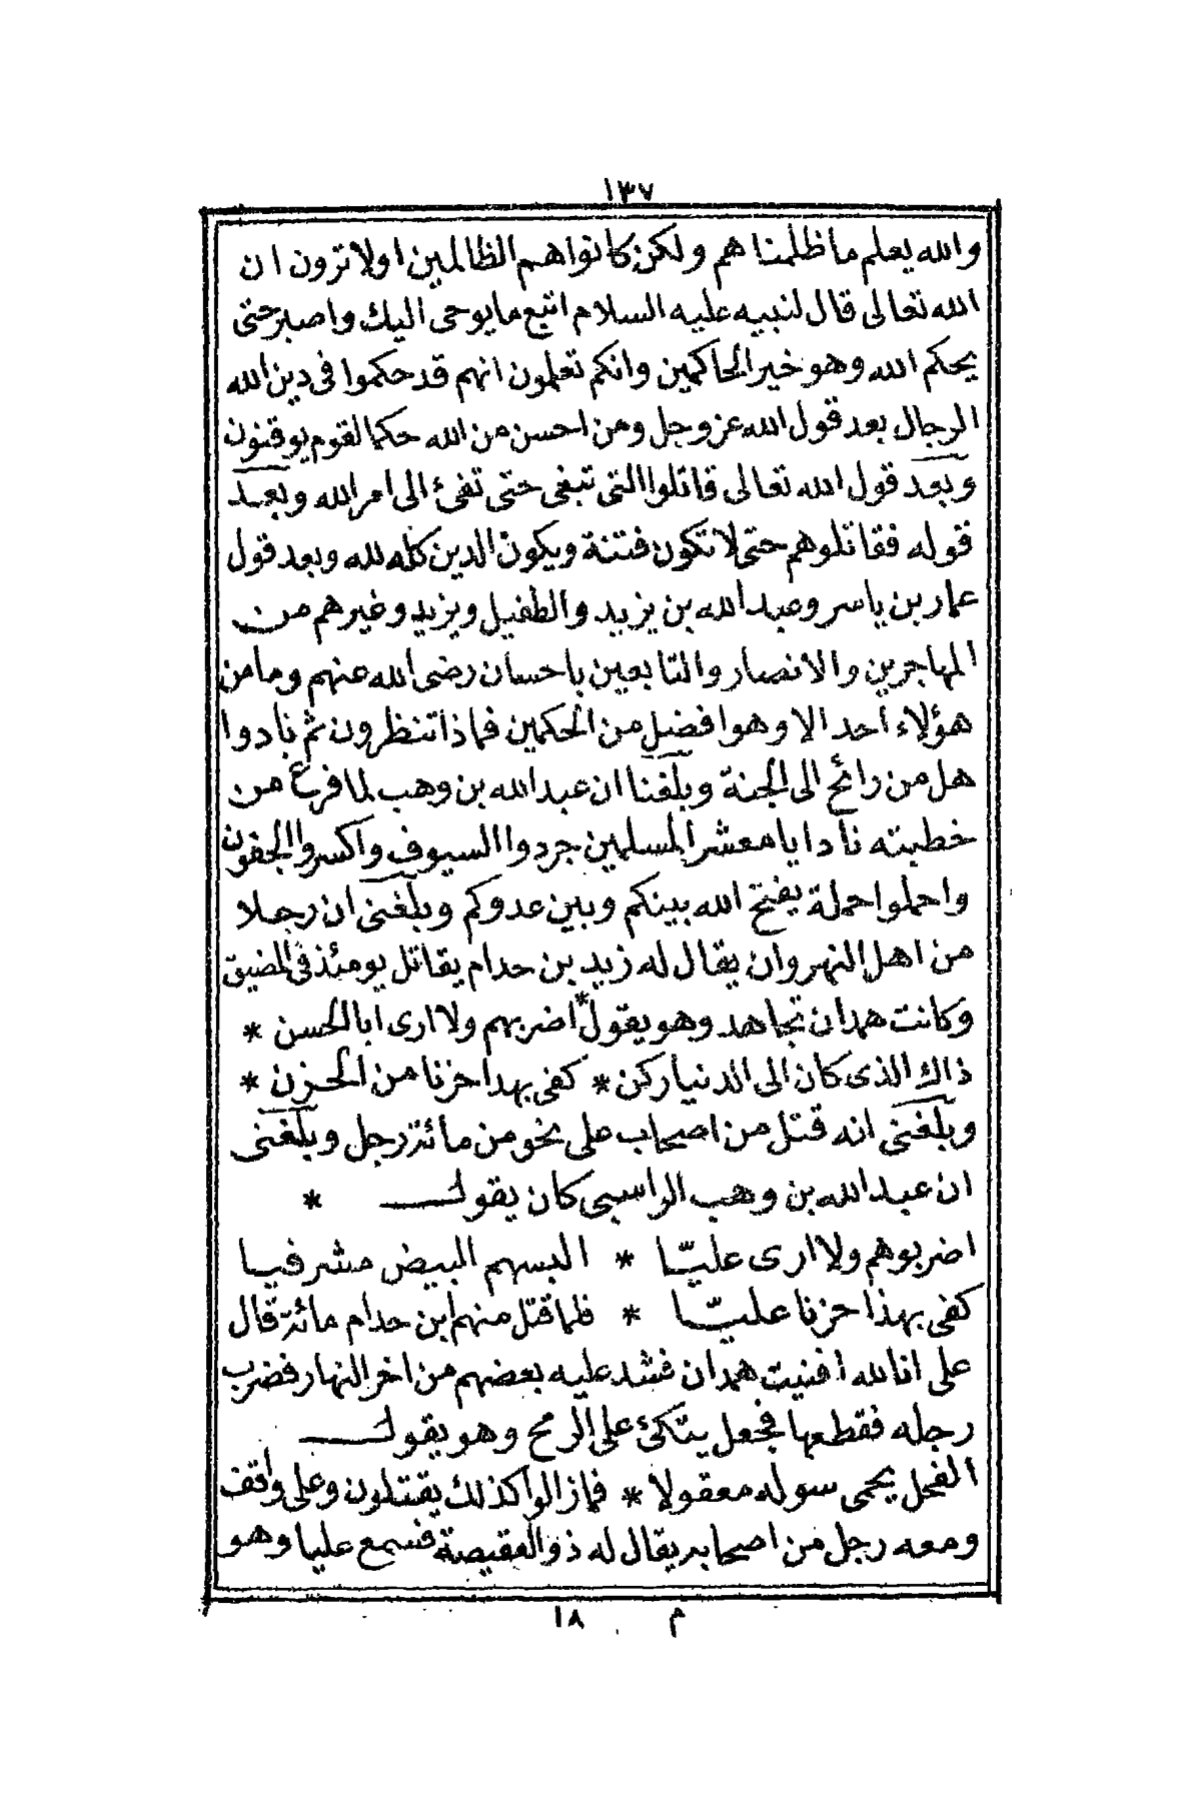 ١٣٧
والله يعلم ما ظلمنا هم ولكن كانوا هم الظالمين اولا ترون ان
الله تعالى قال لنبيه عليه السلام اتبع ما يوحى اليك واصبر حتى
يحكم الله وهو خير الحاكمين وانكم تعلمون انهم قد حكموا فى دين الله
الرجال بعد قول الله عز وجل ومن احسن من الله حكما لقوم يوقنون
وبعد قول الله تعالى قاتلوا التى تبغى حتى تفئ الى امر الله وبعد
قوله فقاتلوهم حتى لا تكون فتنة ويكون الدين كله لله وبعد قول
عمار بن ياسر وعبد الله بن يزيد والطفيل ويزيد وغيرهم من
المهاجرين والانصار والتابعين باحسان رضى الله عنهم وما من
هؤلاء أحد الا وهو افضل من الحكمين فماذا تنظرون ثم نادوا
هل من رائح الى الجنة وبلغنا ان عبد الله بن وهب لما فرغ من
خطبته نادا يا معشر المسلمين جردوا السيوف واكسروا الجفون
واحملوا حملة يفتح الله بينكم وبين عدوكم وبلغنى ان رجلا
من اهل النهروان يقال له زيد بن حدام يقاتل يومئذ فى المضيق
وكانت همدان تجاهد وهو يقول * اضربهم ولا ارى ابا الحسن *
ذاك الذى كان الى الدنيا ركن * كفى بهذا حزنا من الحزن *
وبلغنى انه قتل من اصحاب على نحو من مائة رجل وبلغنى
ان عبد الله بن وهب الراسبى كان يقول *
اضربوهم ولا ارى عليّا * البسهم البيض مشرفيا
كفى بهذا حزنا عليّا * فلما قتل منهم ابن حدام مائة قال
على انا لله أفنيت همدان فشد عليه بعضهم من اخر النهار فضرب
رجله فقطعها فجعل يتكئ على الرمح وهو يقول
الفحل يحمى سوله معقولا * فما زالوا كذلك يقتتلون وعلى واقف
ومعه رجل من اصحابه يقال له ذو العقيصة فسمع عليا وهو
م ١٨